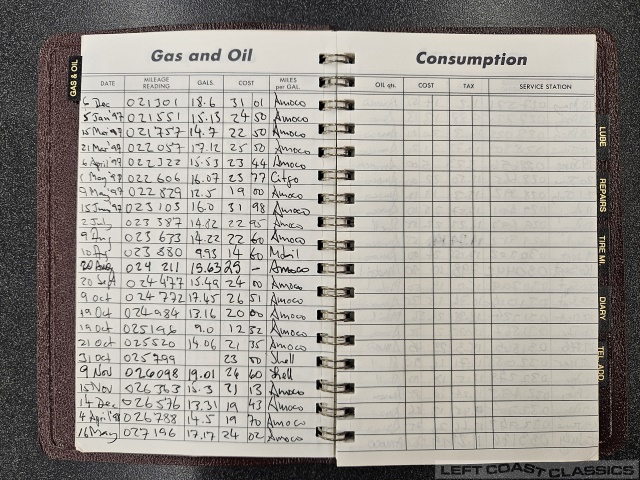 Gas and Oil
DATE MILEAGE READING GALS. COST MILES per GAL.
6 Dec 021301 18.6 31 01 Amoco
5 Jan '97 021551 15.13 24 50 Amoco
15 Mar '97 021757 14.7 22 50 Amoco
21 Mar '97 022057 17.12 25 50 Amoco
6 April '97 022322 15.53 23 44 Amoco
1 May '97 022606 16.07 23 77 Citgo
9 May '97 022829 12.5 19 00 Amoco
15 June '97 023103 16.0 31 98 Amoco
2 July 023387 14.82 22 95 Amoco
9 Aug 023673 14.22 22 60 Amoco
10 Aug 023880 9.93 14 60 Mobil
20 Aug 024211 15.63 25 - Amoco
20 Sept 024477 15.49 24 00 Amoco
9 Oct 024772 17.45 26 51 Amoco
19 Oct 024984 13.16 20 00 Amoco
19 Oct 025196 9.0 12 52 Amoco
21 Oct 025520 14.06 21 35 Amoco
31 Oct 025799 23 50 Shell
9 Nov 026098 19.01 26 60 Shell
15 Nov 026363 15.3 31 13 Amoco
14 Dec 026576 13.31 19 43 Amoco
4 April '98 026788 14.5 19 70 Amoco
16 May 027196 17.17 24 02 Amoco
Consumption
OIL qts. COST TAX SERVICE STATION
GAS & OIL
LUBE
REPAIRS
TIRE MI.
DIARY
TEL. ADD.
LEFT COAST CLASSICS